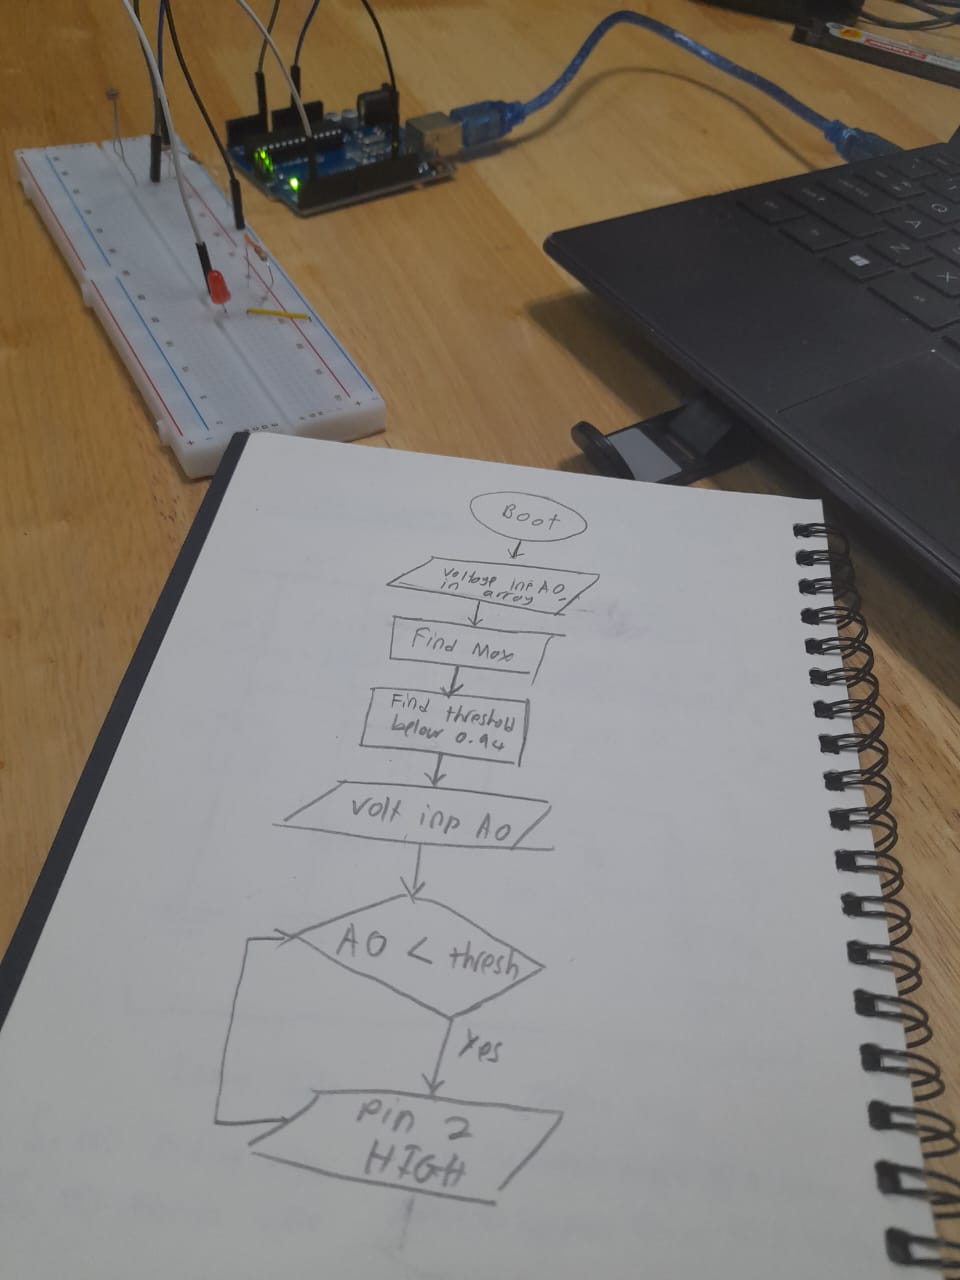 Boot
voltage inp A0
in array
Find Max
Find threshold
below 0.94
volt inp A0
A0 < thresh
Yes
pin 2
HIGH